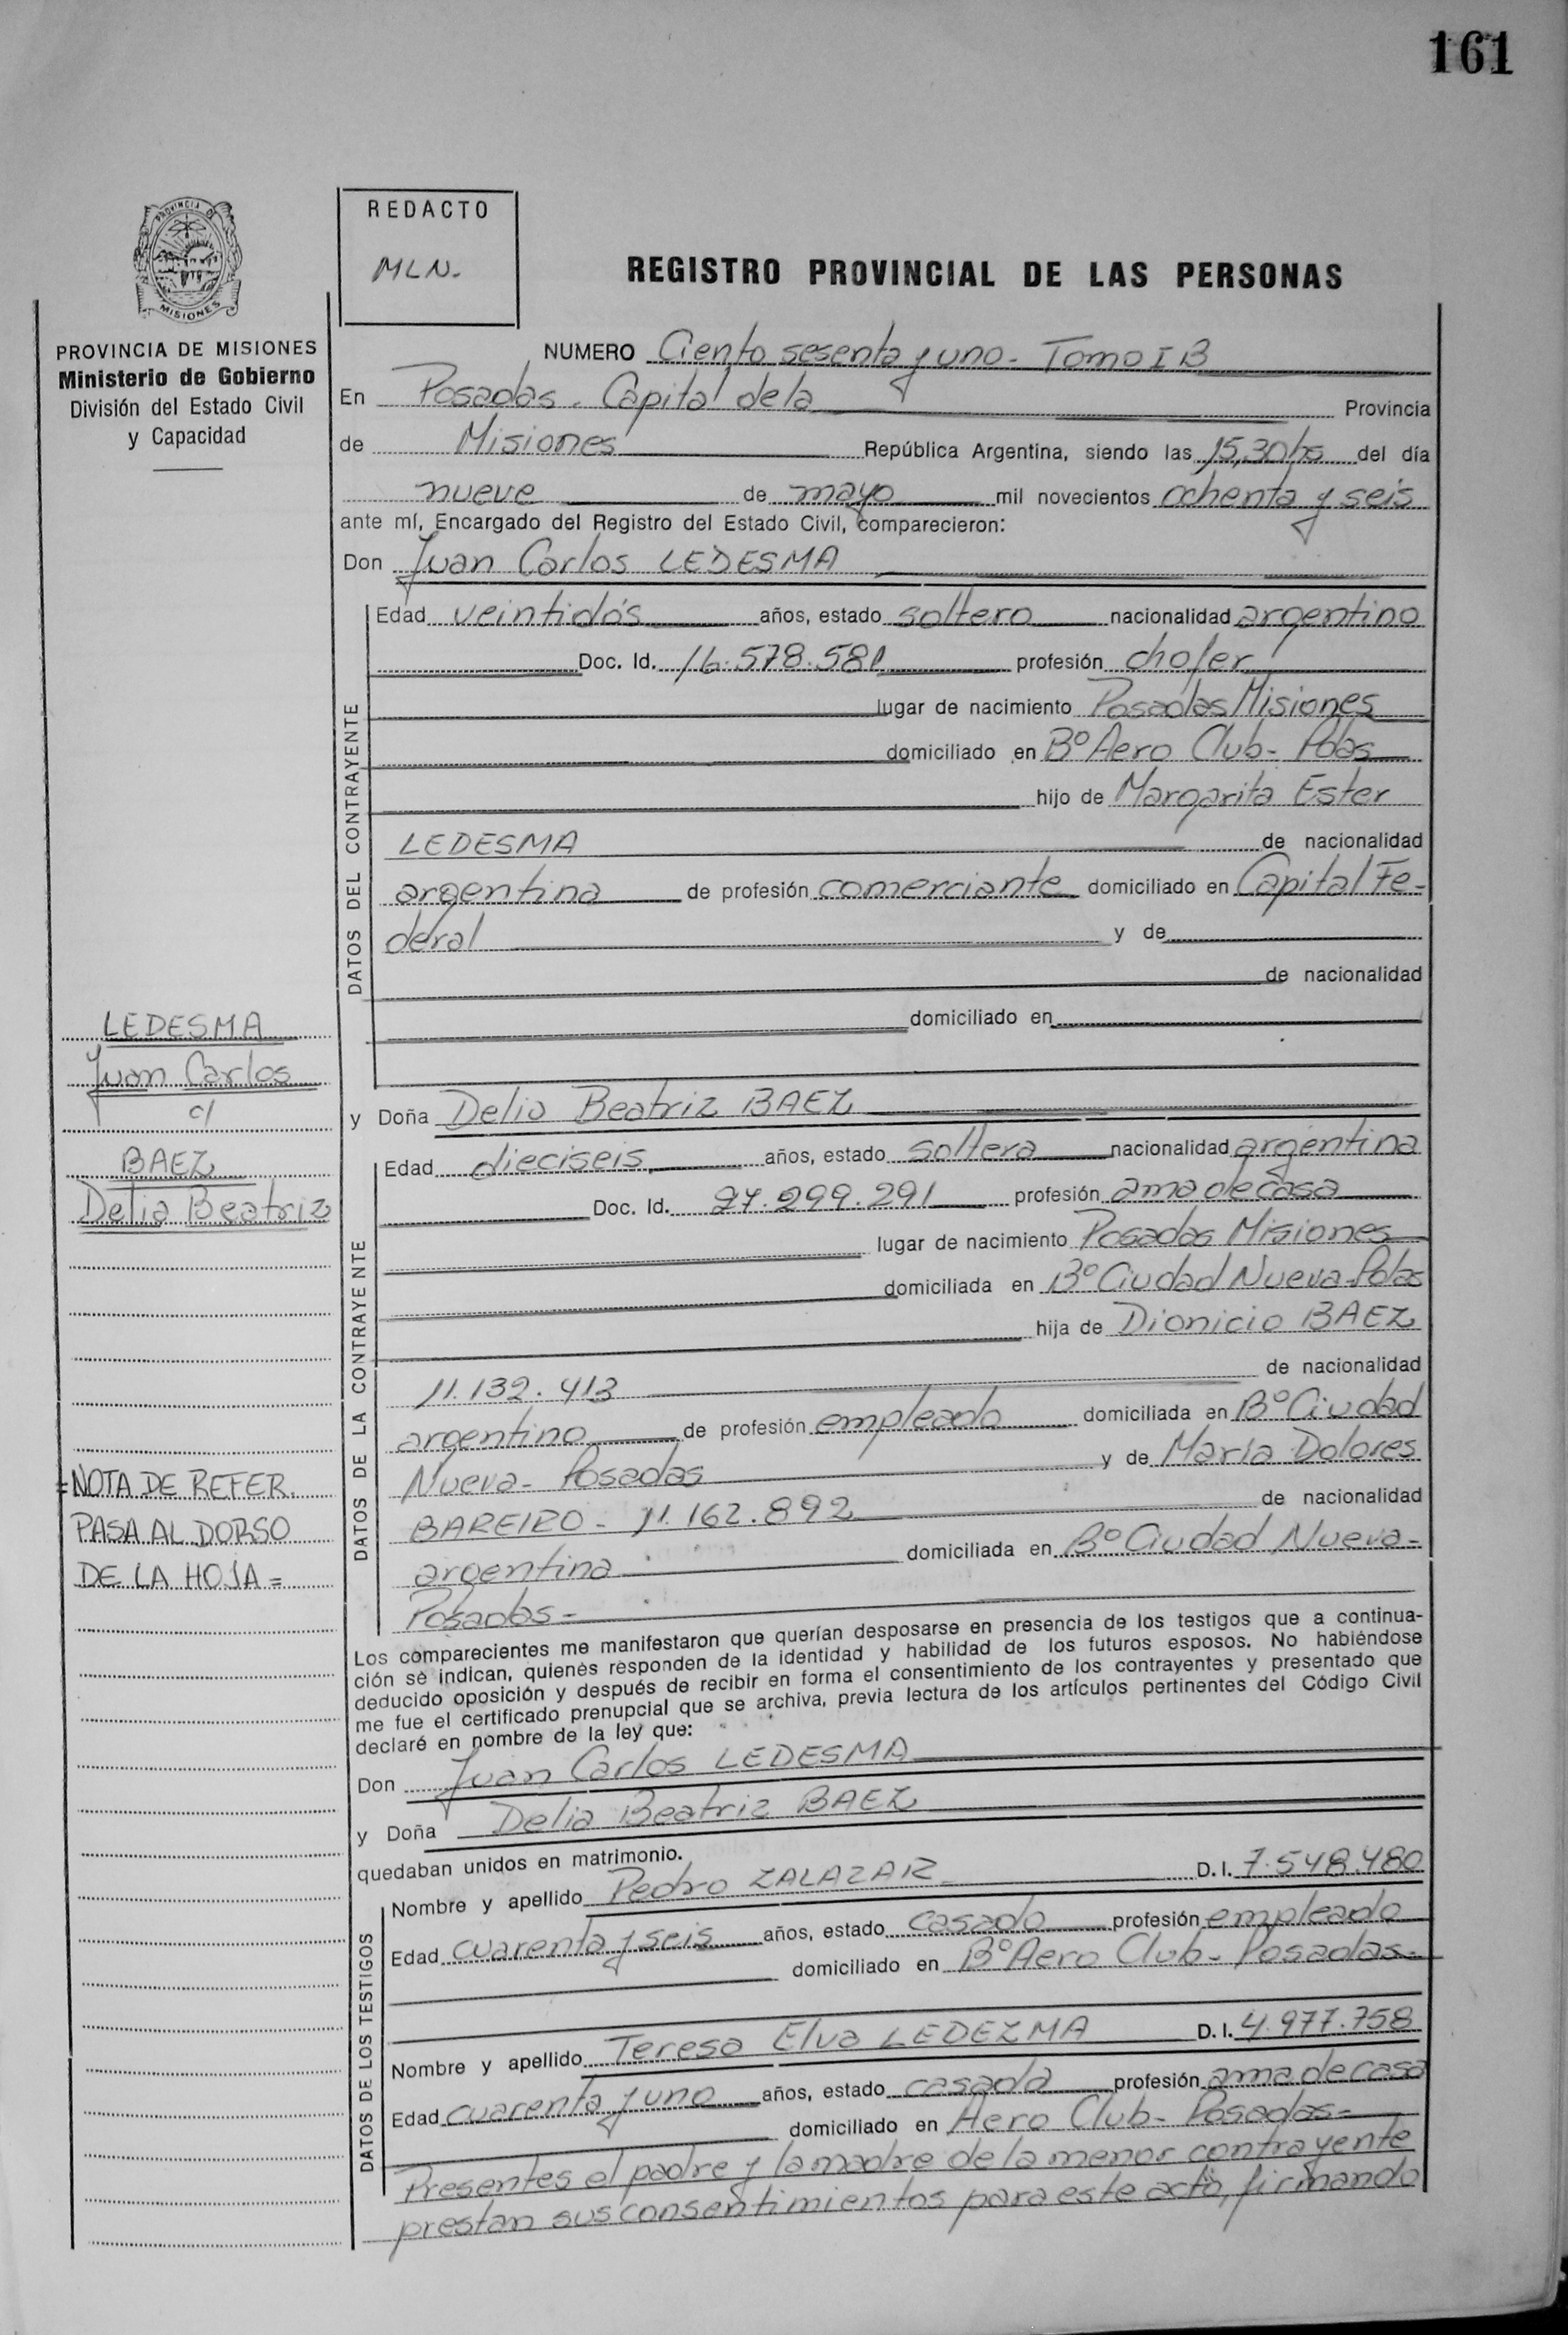 161
PROVINCIA DE
MISIONES
REDACTO
MLN.
REGISTRO PROVINCIAL DE LAS PERSONAS
PROVINCIA DE MISIONES
Ministerio de Gobierno
División del Estado Civil
y Capacidad
NUMERO Ciento sesenta y uno - Tomo I B
En Posadas. Capital de la Provincia
de Misiones República Argentina, siendo las 15,30 hs del día
nueve de mayo mil novecientos ochenta y seis
ante mí, Encargado del Registro del Estado Civil, comparecieron:
Don Juan Carlos LEDESMA
DATOS DEL CONTRAYENTE
Edad veintidós años, estado soltero nacionalidad argentino
Doc. Id. 16.578.581 profesión chofer
lugar de nacimiento Posadas Misiones
domiciliado en Bº Aero Club - Pdas
hijo de Margarita Ester
LEDESMA de nacionalidad
argentina de profesión comerciante domiciliado en Capital Fe-
deral y de
de nacionalidad
domiciliado en
LEDESMA
Juan Carlos
c/
BAEZ
Delia Beatriz
y Doña Delia Beatriz BAEZ
DATOS DE LA CONTRAYENTE
Edad dieciseis años, estado soltera nacionalidad argentina
Doc. Id. 27.299.291 profesión ama de casa
lugar de nacimiento Posadas Misiones
domiciliada en Bº Ciudad Nueva - Pdas
hija de Dionicio BAEZ
11.132.413 de nacionalidad
argentino de profesión empleado domiciliada en Bº Ciudad
Nueva - Posadas y de María Dolores
BAREIRO - 11.162.892 de nacionalidad
argentina domiciliada en Bº Ciudad Nueva -
Posadas =
=NOTA DE REFER.
PASA AL DORSO
DE LA HOJA =
Los comparecientes me manifestaron que querían desposarse en presencia de los testigos que a continua-
ción se indican, quienes responden de la identidad y habilidad de los futuros esposos. No habiéndose
deducido oposición y después de recibir en forma el consentimiento de los contrayentes y presentado que
me fue el certificado prenupcial que se archiva, previa lectura de los artículos pertinentes del Código Civil
declaré en nombre de la ley que:
Don Juan Carlos LEDESMA
y Doña Delia Beatriz BAEZ
quedaban unidos en matrimonio.
DATOS DE LOS TESTIGOS
Nombre y apellido Pedro ZALAZAR D. I. 7.548.480
Edad cuarenta y seis años, estado casado profesión empleado
domiciliado en Bº Aero Club - Posadas -
Nombre y apellido Teresa Elva LEDEZMA D. I. 4.977.758
Edad cuarenta y uno años, estado casada profesión ama de casa
domiciliado en Aero Club - Posadas =
Presentes el padre y la madre de la menor contrayente
prestan sus consentimientos para este acto, firmando